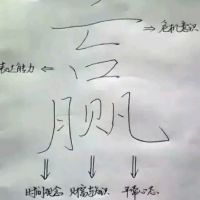 赢
危机意识
表达能力
时间观念 财富知识 平常心态